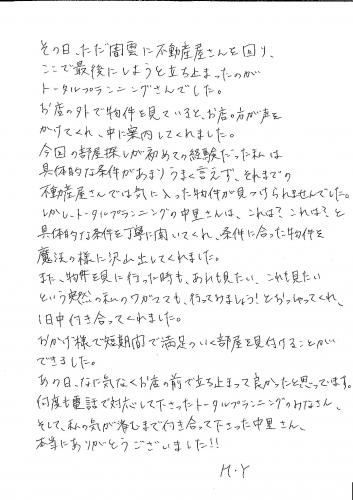 その日、ただ闇雲に不動産屋さんを回り、
ここで最後にしようと立ち止まったのが
トータルプランニングさんでした。
お店の外で物件を見ていると、お店の方が声を
かけてくれ、中に案内してくれました。
今回の部屋探しが初めての経験だった私は
具体的な条件があまりうまく言えず、それまでの
不動産屋さんでは気に入った物件が見つけられませんでした。
しかし、トータルプランニングの中里さんは、これは?これは?と
具体的な条件を丁寧に聞いてくれ、条件に合った物件を
魔法の様に沢山出してくれました。
また、物件を見に行った時も、あれも見たい、これも見たい
という突然の私のワガママも、行ってみましょう!とおっしゃってくれ、
1日中付き合ってくれました。
おかげ様で短期間で満足のいく部屋を見付けることが
できました。
あの日、なに気なくお店の前で立ち止まって良かったと思っています。
何度も電話で対応して下さったトータルプランニングのみなさん、
そして、私の気が済むまで付き合って下さった中里さん、
本当にありがとうございました!!
H.Y